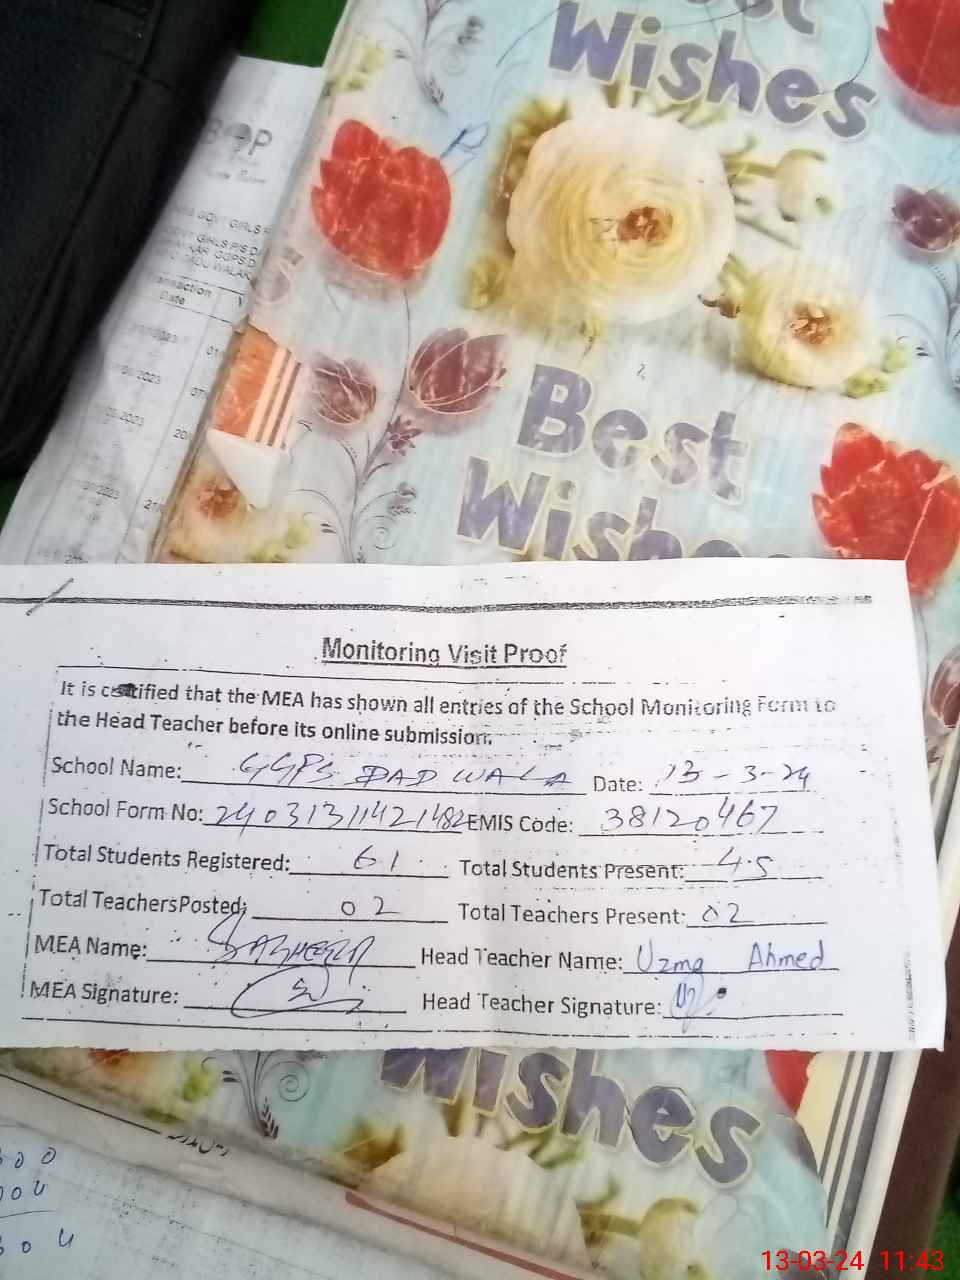 Best
Wishes
BOP
GOVT GIRLS P
GOVT GIRLS P/S DA
GGPS D
DADU WALA
Transaction
Date
Best
Wishes
Monitoring Visit Proof
It is certified that the MEA has shown all entries of the School Monitoring Form to
the Head Teacher before its online submission.
School Name: GGPS DAD WALA Date: 13-3-24
School Form No: 24031311421482 EMIS Code: 38120467
Total Students Registered: 61 Total Students Present: 45
Total Teachers Posted: 02 Total Teachers Present: 02
MEA Name: Head Teacher Name: Uzma Ahmed
MEA Signature: Head Teacher Signature:
Wishes
13-03-24 11:43